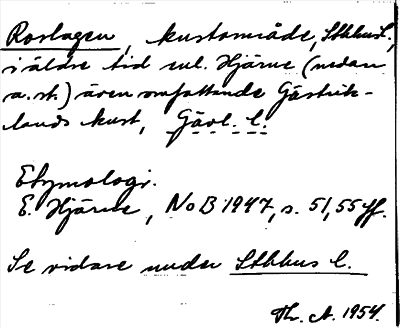 Roslagen, kustområde, Sthlms l.,
i äldre tid enl. Hjärne (nedan
a. st.) även omfattande Gästrik-
lands kust, Gävl. l.
Etymologi.
E. Hjärne, NoB 1947, s. 51, 55 ff.
Se vidare under Sthlms l.
Th. A. 1954.